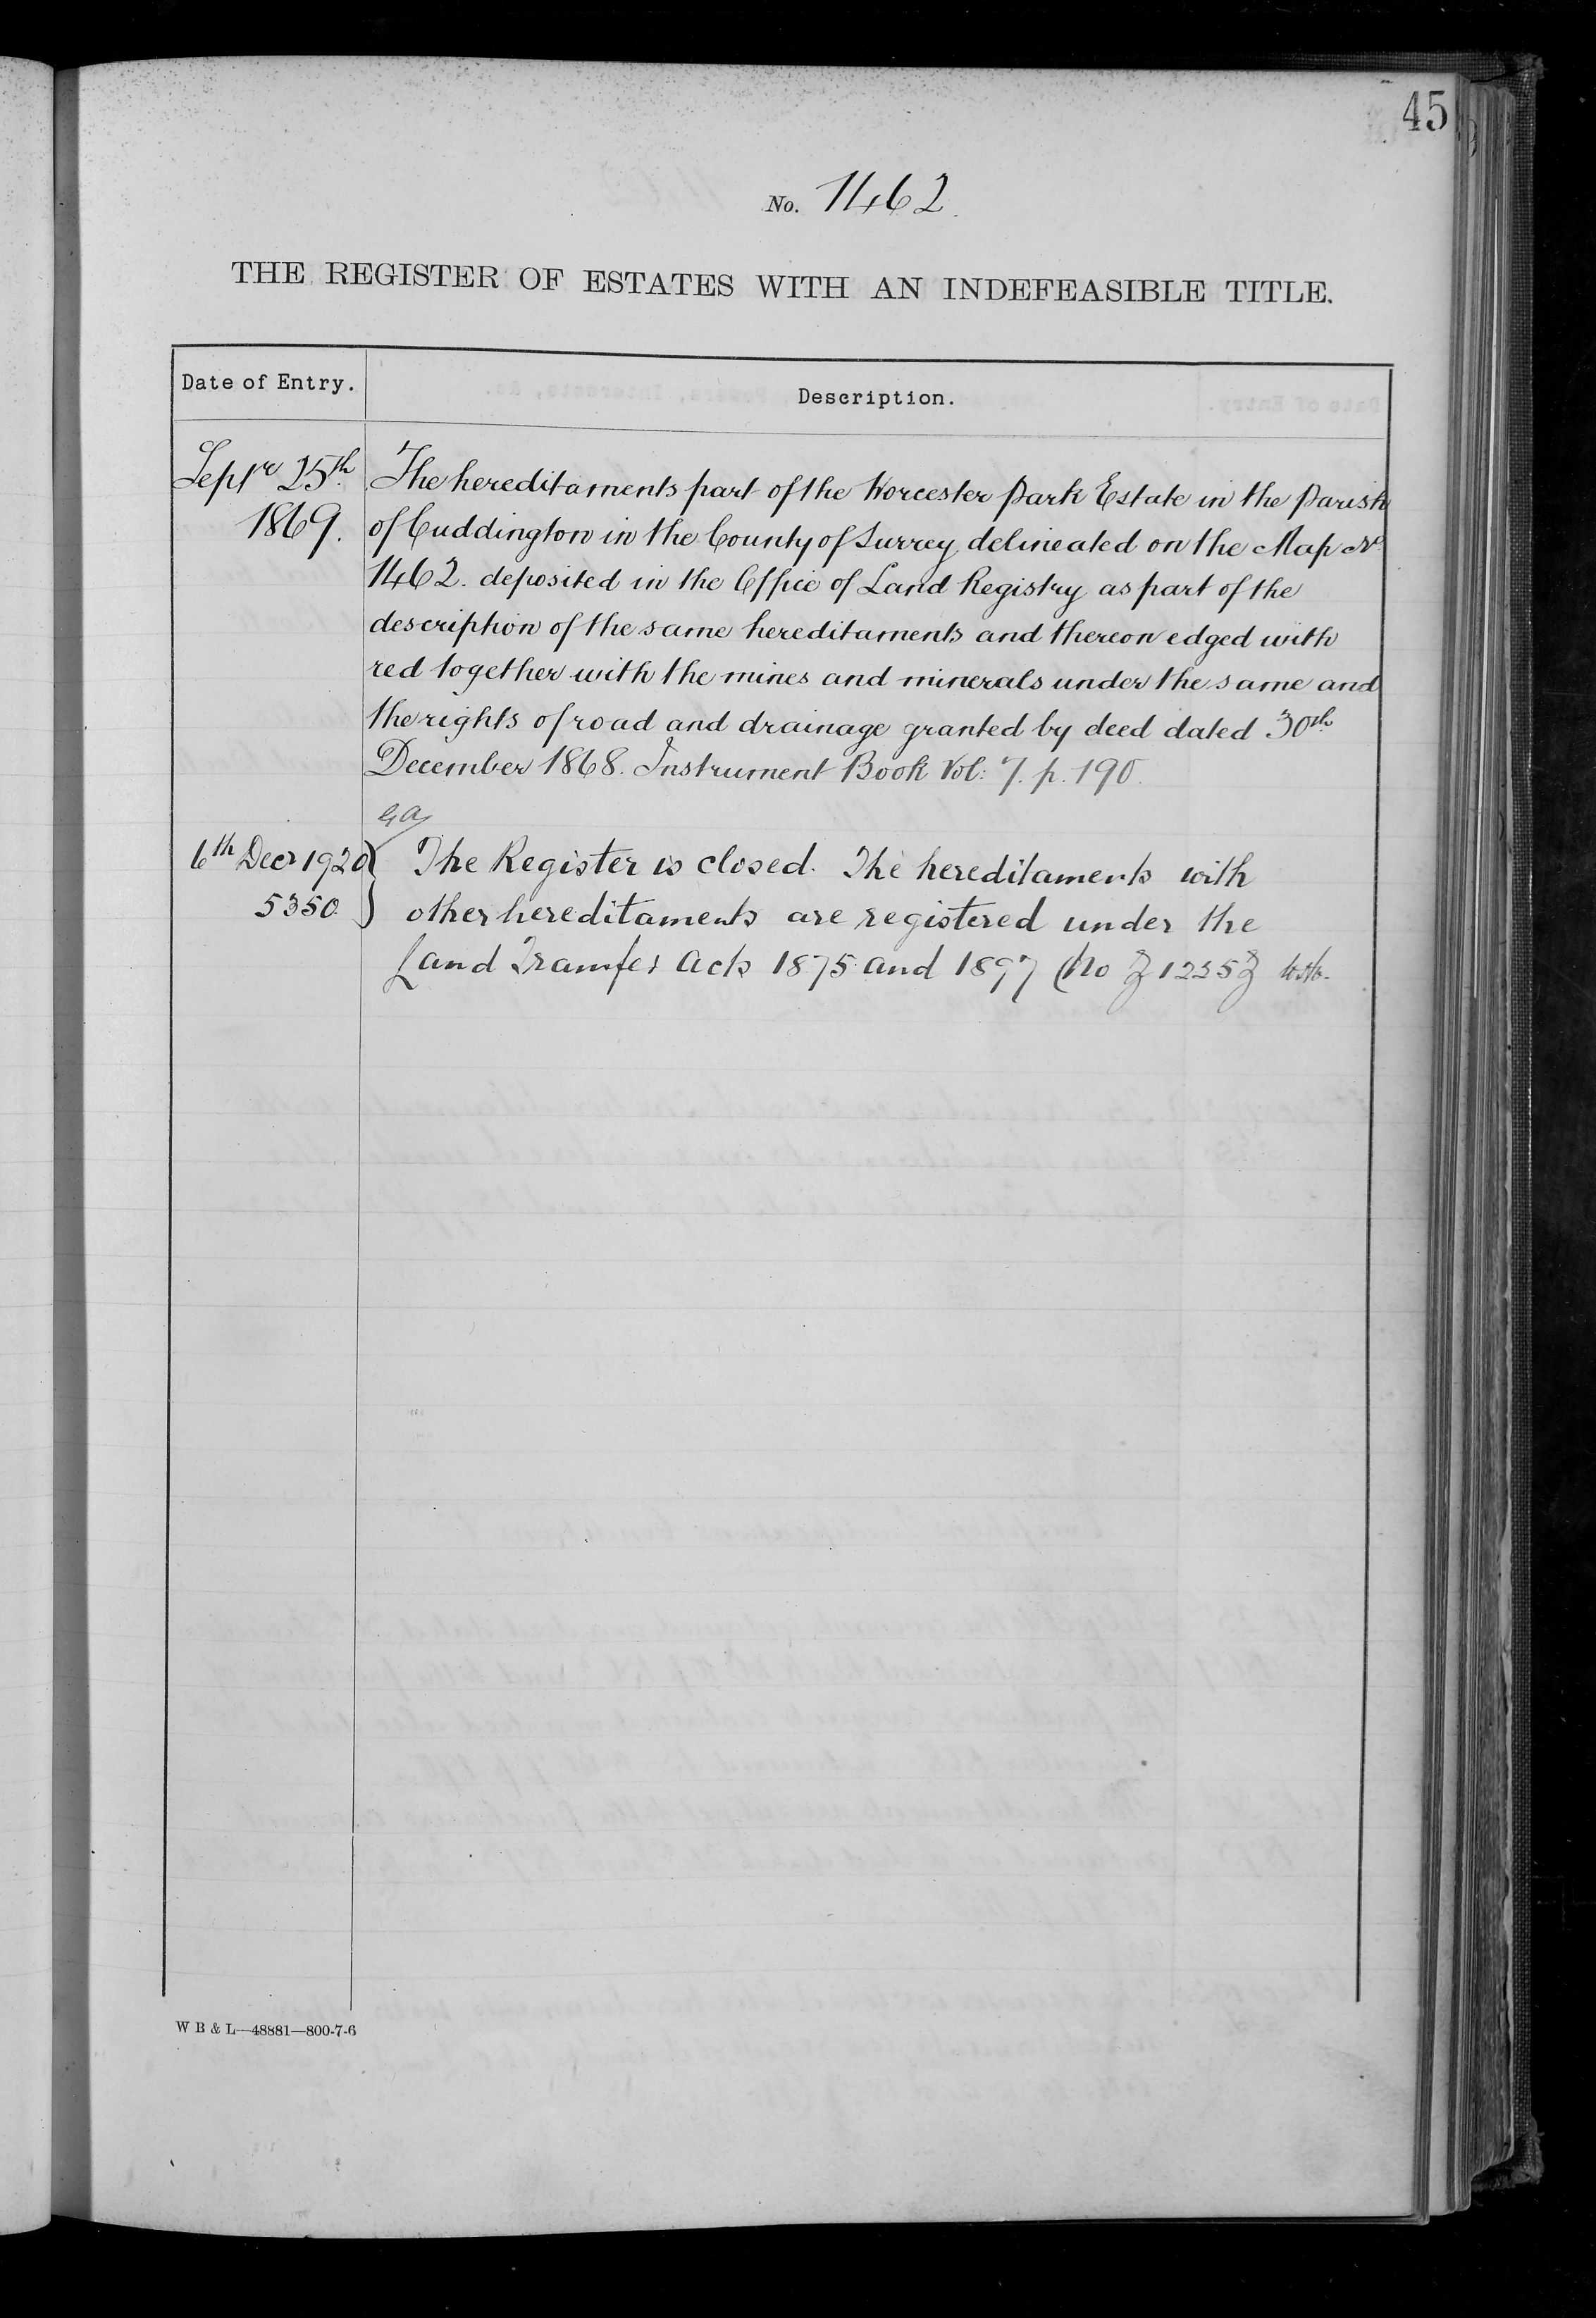 45
No. 1462.
THE REGISTER OF ESTATES WITH AN INDEFEASIBLE TITLE.
Date of Entry.
Description.
Septr 25th
1869.
The hereditaments part of the Worcester Park Estate in the Parish
of Cuddington in the County of Surrey delineated on the Map No
1462. deposited in the Office of Land Registry as part of the
description of the same hereditaments and thereon edged with
red together with the mines and minerals under the same and
the rights of road and drainage granted by deed dated 30th
December 1868. Instrument Book Vol: 7. p. 190.
6th Decr 1920
5350
The Register is closed. The hereditaments with
other hereditaments are registered under the
Land Transfer Acts 1875 and 1897 (No
W B & L—48881—800-7-6